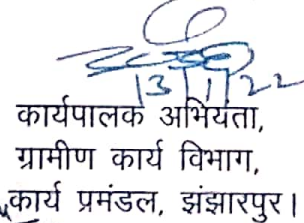 13/1/22
कार्यपालक अभियंता,
ग्रामीण कार्य विभाग,
कार्य प्रमंडल, झंझारपुर।